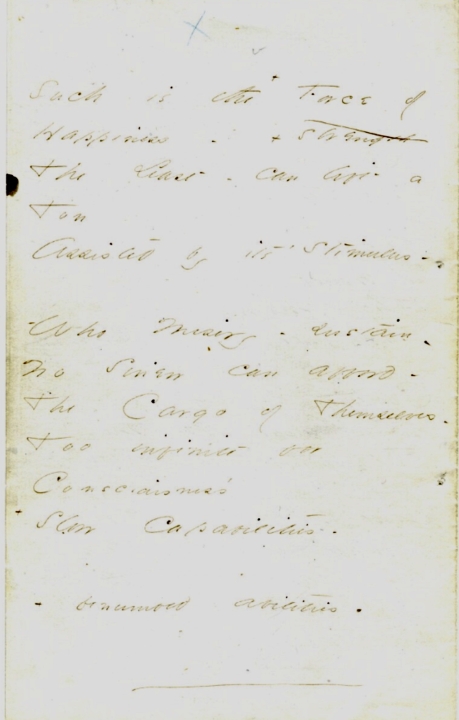 Such is the Force of
Happiness - + Strength
The Least - can lift a
Ton
Assisted by its stimulus -
Who Misery - sustain -
No Sinew can afford -
The Cargo of Themselves -
Too infinite for
Consciousness'
Slow Capabilities -
- benumbed abilities -